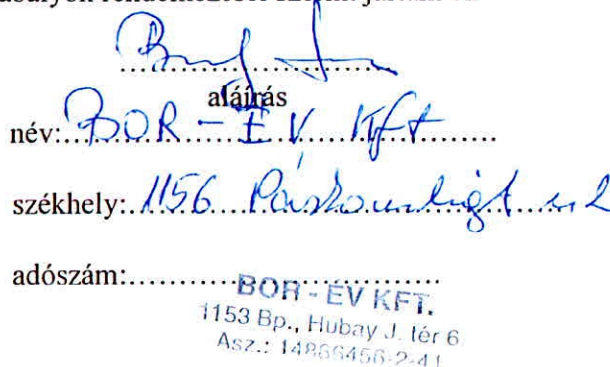 aláírás
név: BOR - ÉV Kft
székhely: 1156
adószám:
BOR - ÉV KFT.
1153 Bp., Hubay J. tér 6
Asz.: 14866456-2-41